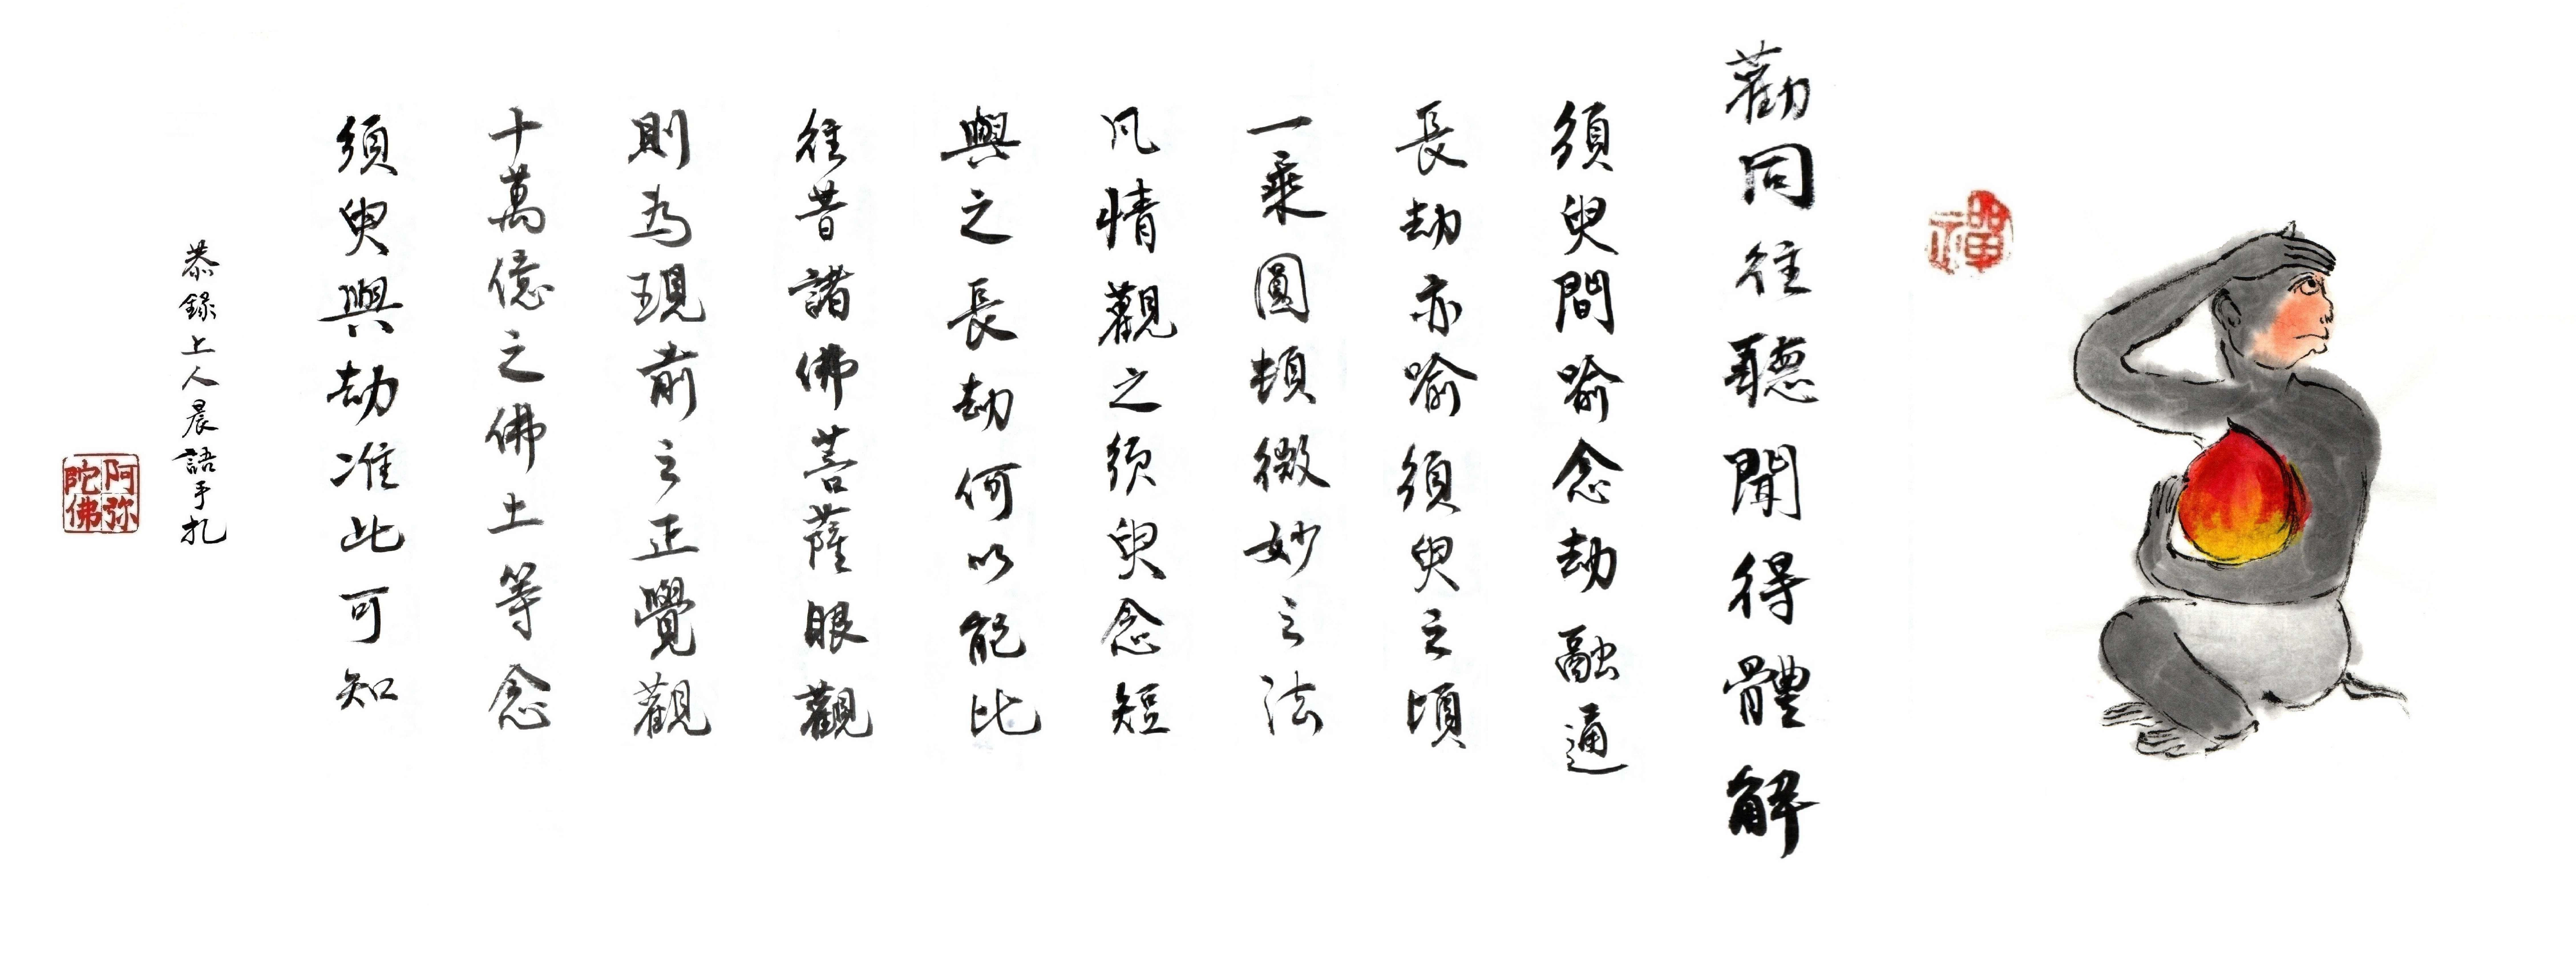 禪
勸同往聽聞得體解
須臾間喻念劫融通
長劫亦喻須臾之頃
一乘圓頓微妙之法
凡情觀之須臾念短
與之長劫何以能比
往昔諸佛菩薩眼觀
則為現前之正覺觀
十萬億之佛土等念
須臾與劫准此可知
恭錄上人晨語手扎
阿弥
陀佛